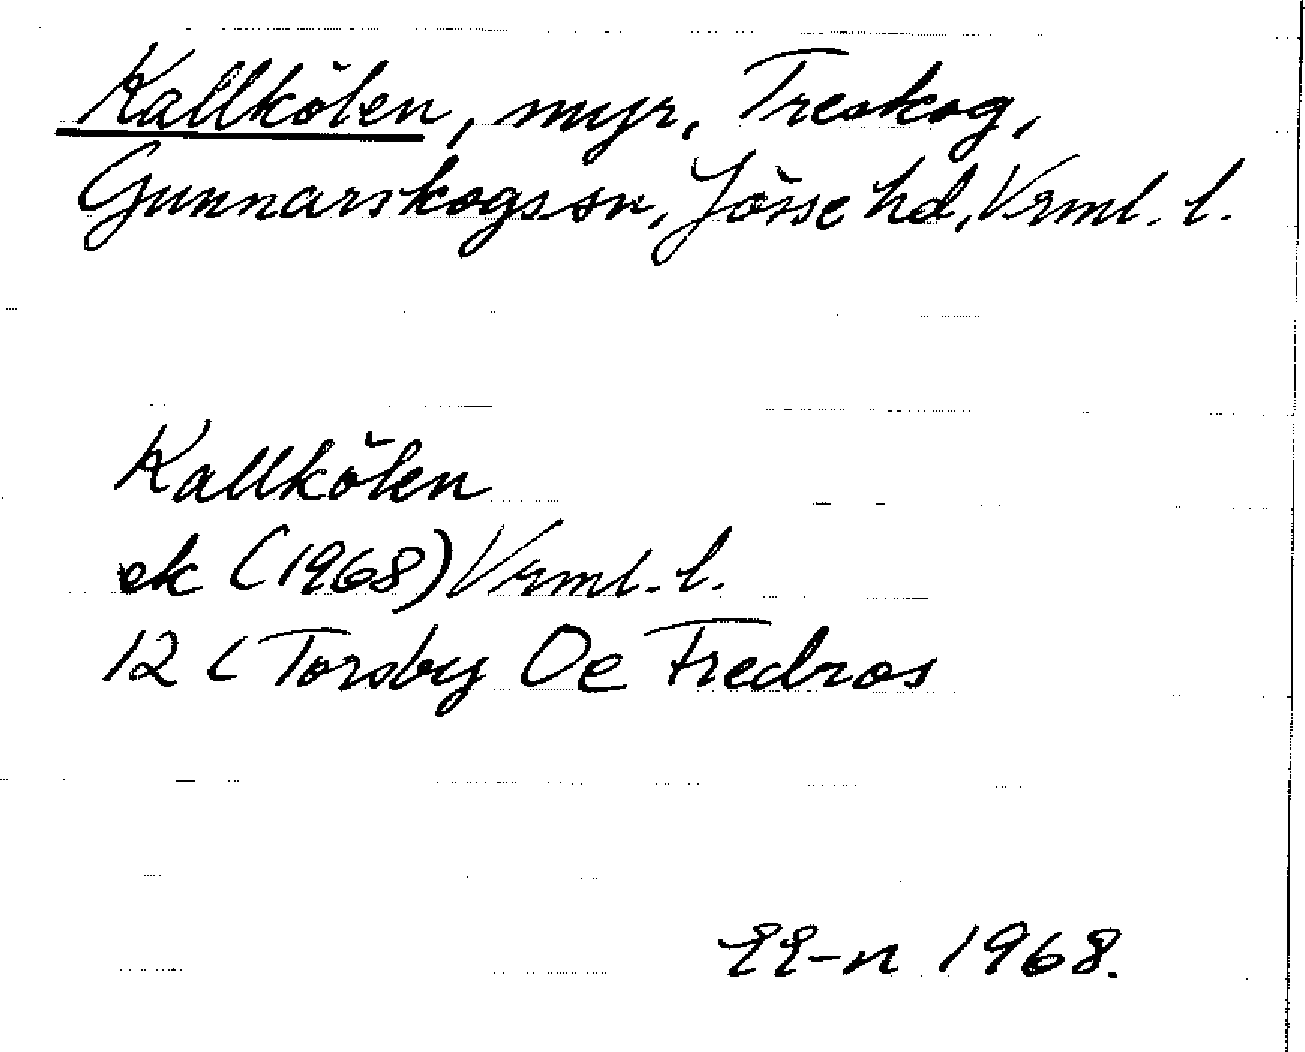 Kallkölen, myr, Treskog,
Gunnarskogs sn, Jösse hd, Vrml. l.
Kallkölen
ek (1968) Vrml. l.
12 C Torsby 0e Fredros
EE-n 1968.